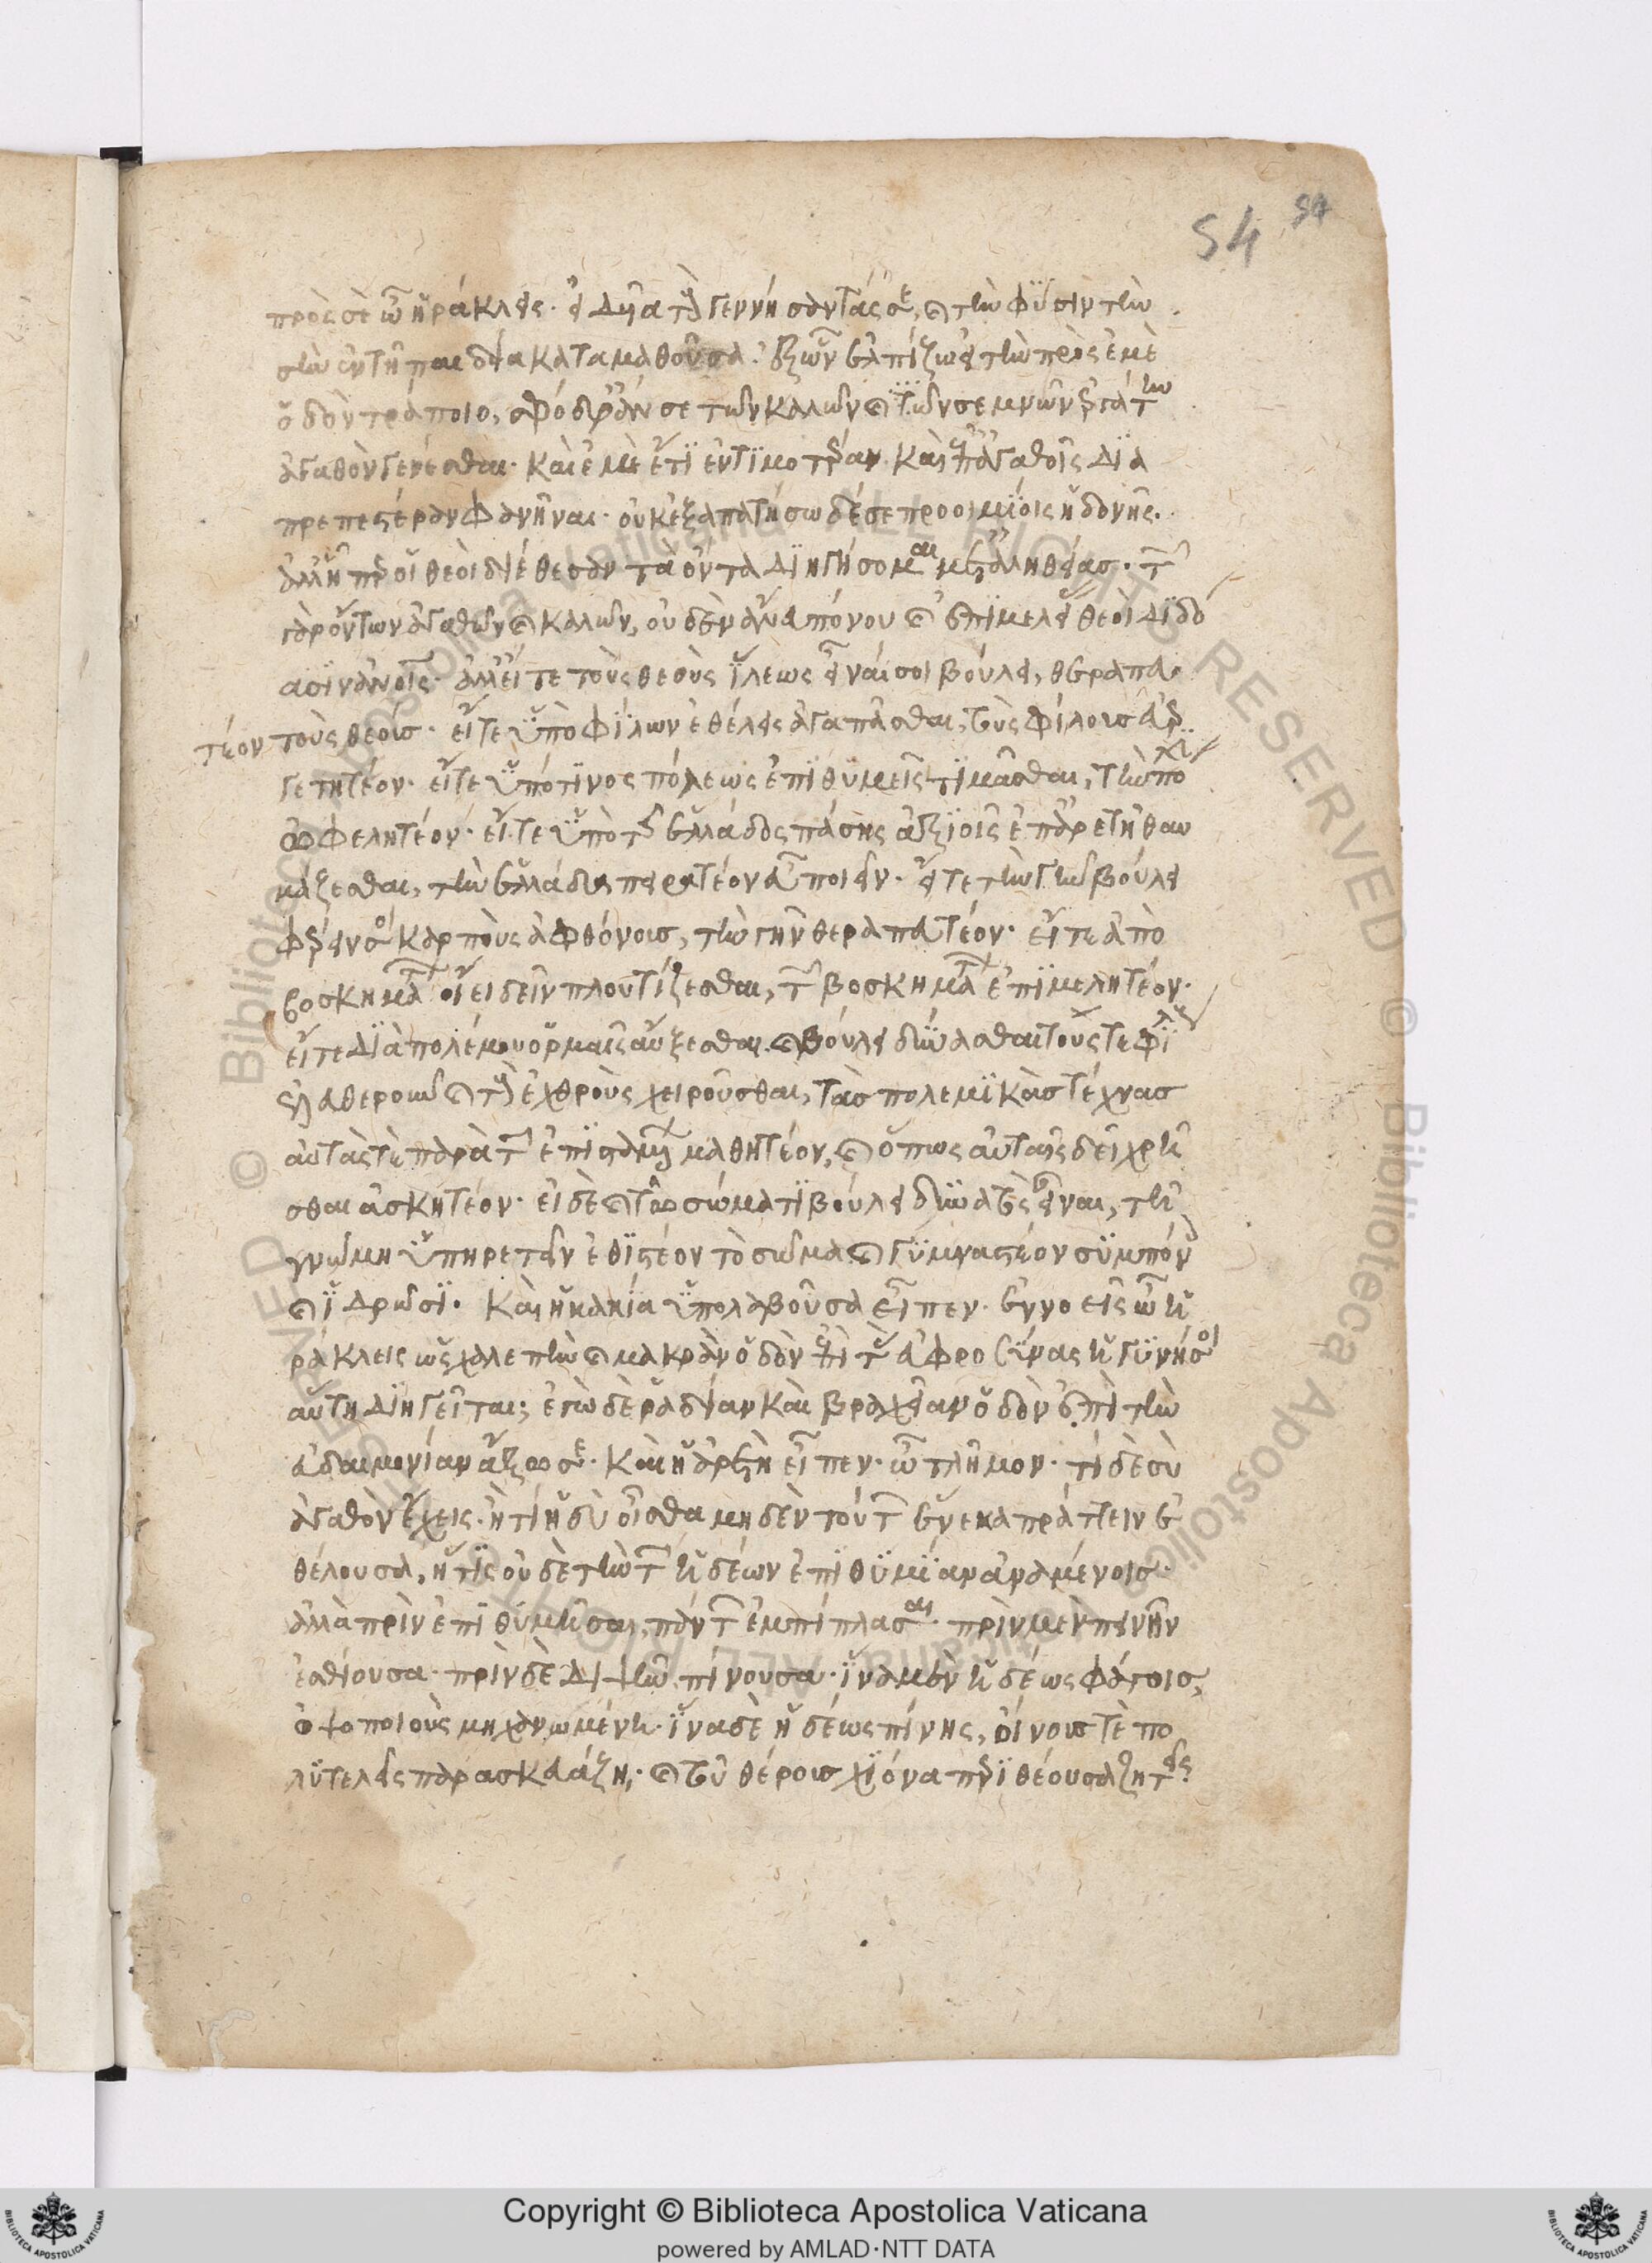 54 54
πρὸς σὲ ὦ ἡράκλεις· εἰδυῖα τοὺς γεννήσαντάς σε, καὶ τὴν φύσιν τὴν
σὴν ἐν τῇ παιδεία καταμαθοῦσα· ἐξ ὧν ἐλπίζω εἰ τὴν πρὸς ἐμὲ
ὁδὸν τράποιο, σφόδρ' ἄν σε τῶν καλῶν καὶ τῶν σεμνῶν ἐργάτην
ἀγαθὸν γενέσθαι· καὶ ἐμὲ ἔτι ἐντιμοτέραν καὶ ἐπ' ἀγαθοῖς δια
πρεπεστέραν φανῆναι· οὐκ ἐξαπατήσω δέ σε προοιμίοις ἡδονῆς·
ἀλλ' ᾗπερ οἱ θεοὶ διέθεσαν τὰ ὄντα διηγήσομαι μετ' ἀληθείας· τῶν
γὰρ ὄντων ἀγαθῶν καὶ καλῶν, οὐδὲν ἄνευ πόνου καὶ ἐπιμελείας θεοὶ διδό
ασιν ἀνθρώποις· ἀλλ' εἴτε τοὺς θεοὺς ἵλεως εἶναί σοι βούλει, θεραπευ
τέον τοὺς θεούς· εἴτε ὑπὸ φίλων ἐθέλεις ἀγαπᾶσθαι, τοὺς φίλους εὐερ
γετητέον· εἴτε ὑπό τινος πόλεως ἐπιθυμεῖς τιμᾶσθαι, τὴν πόλιν
ὠφελητέον· εἴτε ὑπὸ τῆς ἑλλάδος πάσης ἀξιοῖς ἐπ' ἀρετῇ θαυ
μάζεσθαι, τὴν ἑλλάδα πειρατέον εὖ ποιεῖν· εἴτε τὴν γῆν βούλει
φέρειν σοι καρποὺς ἀφθόνους, τὴν γῆν θεραπευτέον· εἴτε ἀπὸ
βοσκημάτων οἴει δεῖν πλουτίζεσθαι, τῶν βοσκημάτων ἐπιμελητέον·
εἴτε διὰ πολέμου ὁρμαῖς αὔξεσθαι καὶ βούλει δύνασθαι τούς τε φίλους
ἐλευθεροῦν καὶ τοὺς ἐχθροὺς χειροῦσθαι, τὰς πολεμικὰς τέχνας
αὐτάς τε παρὰ τῶν ἐπισταμένων μαθητέον, καὶ ὅπως αὐταῖς δεῖ χρῆ
σθαι ἀσκητέον· εἰ δὲ καὶ τῷ σώματι βούλει δυνατὸς εἶναι, τῇ
γνώμη ὑπηρετεῖν ἐθιστέον τὸ σῶμα καὶ γυμναστέον σὺν πόνοις
καὶ ἱδρῶσι· καὶ ἡ κακία ὑπολαβοῦσα εἶπεν· ἐννοεῖς ὦ ἡ
ράκλεις ὡς χαλεπὴν καὶ μακρὰν ὁδὸν ἐπὶ τὰς εὐφροσύνας ἡ γυνή σοι
αὕτη διηγεῖται; ἐγὼ δὲ ῥαδίαν καὶ βραχεῖαν ὁδὸν ἐπὶ τὴν
εὐδαιμονίαν ἄξω σε· καὶ ἡ ἀρετὴ εἶπεν· ὦ τλῆμον· τί δὲ σὺ
ἀγαθὸν ἔχεις· ἢ τί ἡδὺ οἶσθα μηδὲν τούτων ἕνεκα πράττειν ἐ
θέλουσα, ἥτις οὐδὲ τὴν τῶν ἡδέων ἐπιθυμίαν ἀναμένεις·
ἀλλὰ πρὶν ἐπιθυμῆσαι, πάντων ἐμπίπλασαι· πρὶν μὲν πεινῆν
ἐσθίουσα· πρὶν δὲ διψῆν πίνουσα· ἵνα μὲν ἡδέως φάγοις,
ὀψοποιοὺς μηχανωμένη· ἵνα δὲ ἡδέως πίνης, οἴνους τὲ πο
λυτελεῖς παρασκευάζη· καὶ τοῦ θέρους χιόνα περιθέουσα ζητεῖς·
Copyright © Biblioteca Apostolica Vaticana
powered by AMLAD·NTT DATA